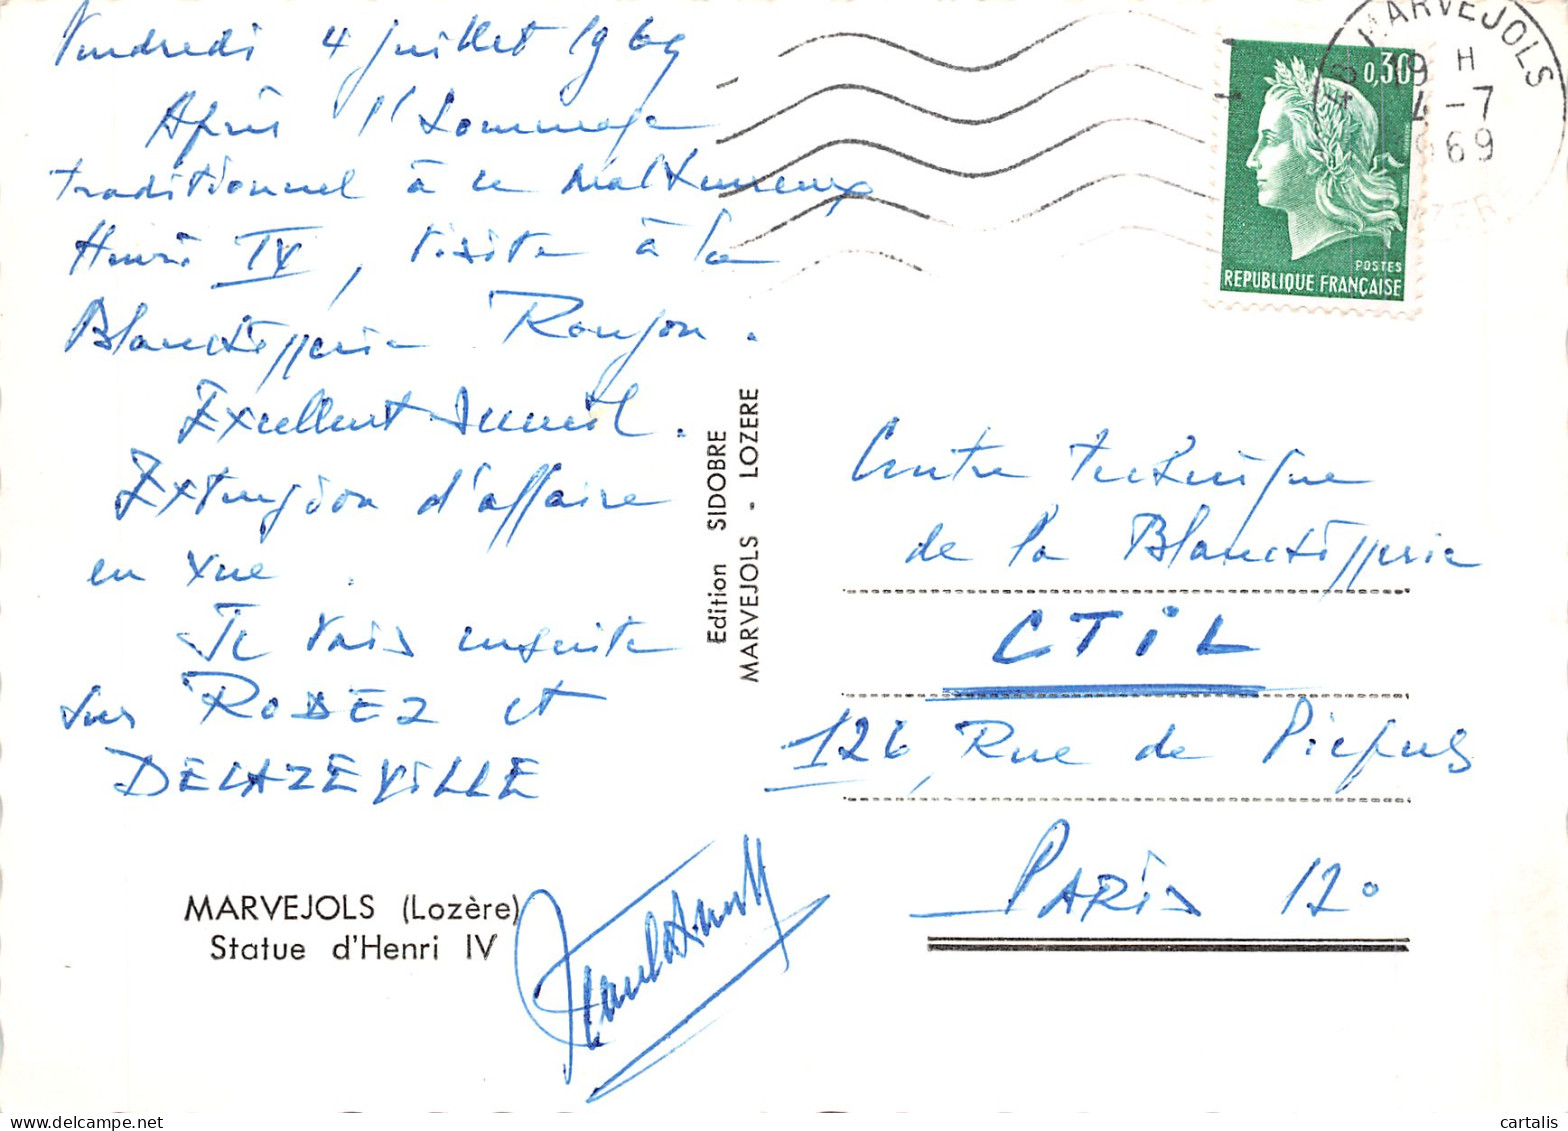 Vendredi 4 juillet 1969
Après l'hommage
traditionnel à ce malheureux
Henri IV, visite à la
Blanchisserie Roujon.
Excellent accueil.
Extension d'affaire
en vue.
Je vais ensuite
sur RODEZ et
DECAZEVILLE
MARVEJOLS (Lozère)
Statue d'Henri IV
Edition SIDOBRE
MARVEJOLS - LOZERE
0,30
POSTES
REPUBLIQUE FRANÇAISE
48 MARVEJOLS
19 H
4-7
1969
LOZERE
Centre technique
de la Blanchisserie
CTIL
126, Rue de Picpus
PARIS 12°